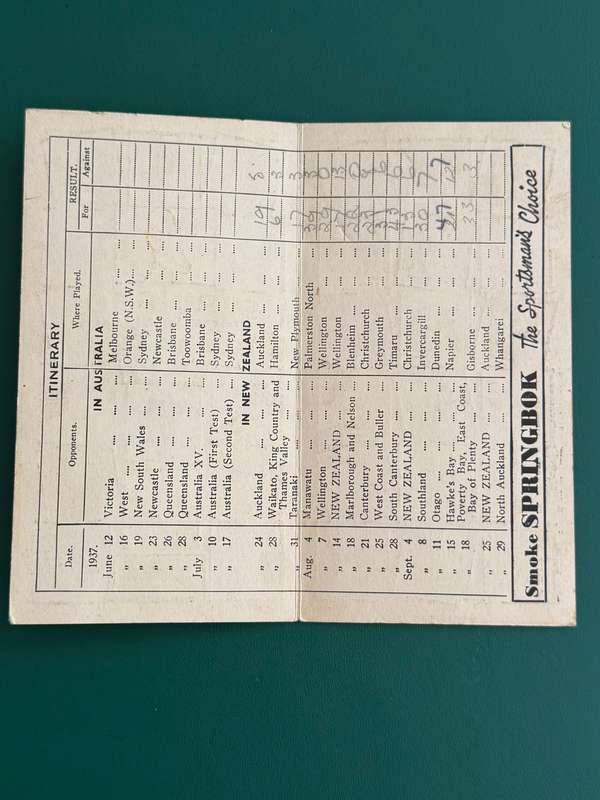 ITINERARY
Date. Opponents. Where Played. RESULT.
For Against
1937. IN AUSTRALIA
June 12 Victoria .... .... .... Melbourne .... ....
„ 16 West .... .... .... Orange (N.S.W.) ....
„ 19 New South Wales .... .... Sydney .... ....
„ 23 Newcastle .... .... .... Newcastle .... ....
„ 26 Queensland .... .... Brisbane .... ....
„ 28 Queensland .... .... Toowoomba .... ....
July 3 Australia XV. .... .... Brisbane .... ....
„ 10 Australia (First Test) .... Sydney .... ....
„ 17 Australia (Second Test) .... Sydney .... ....
IN NEW ZEALAND
„ 24 Auckland .... .... .... Auckland .... .... 19
„ 28 Waikato, King Country and
Thames Valley .... .... Hamilton .... .... 6 3
„ 31 Taranaki .... .... .... New Plymouth .... 17 3
Aug. 4 Manawatu .... .... .... Palmerston North .... 39 3
„ 7 Wellington .... .... .... Wellington .... .... 29 0
„ 14 NEW ZEALAND .... .... Wellington .... .... 13
„ 18 Marlborough and Nelson .... Blenheim .... .... 0
„ 21 Canterbury .... .... .... Christchurch .... .... 23
„ 25 West Coast and Buller .... Greymouth .... .... 31 6
„ 28 South Canterbury .... .... Timaru .... .... 43 6
Sept. 4 NEW ZEALAND .... .... Christchurch .... .... 13 6
„ 8 Southland .... .... .... Invercargill .... .... 30 7
„ 11 Otago .... .... .... Dunedin .... .... 47 7
„ 15 Hawke's Bay .... .... Napier .... .... 12
„ 18 Poverty Bay, East Coast,
Bay of Plenty .... .... Gisborne .... .... 33 3
„ 25 NEW ZEALAND .... .... Auckland .... ....
„ 29 North Auckland .... .... Whangarei .... ....
Smoke SPRINGBOK The Sportsman's Choice